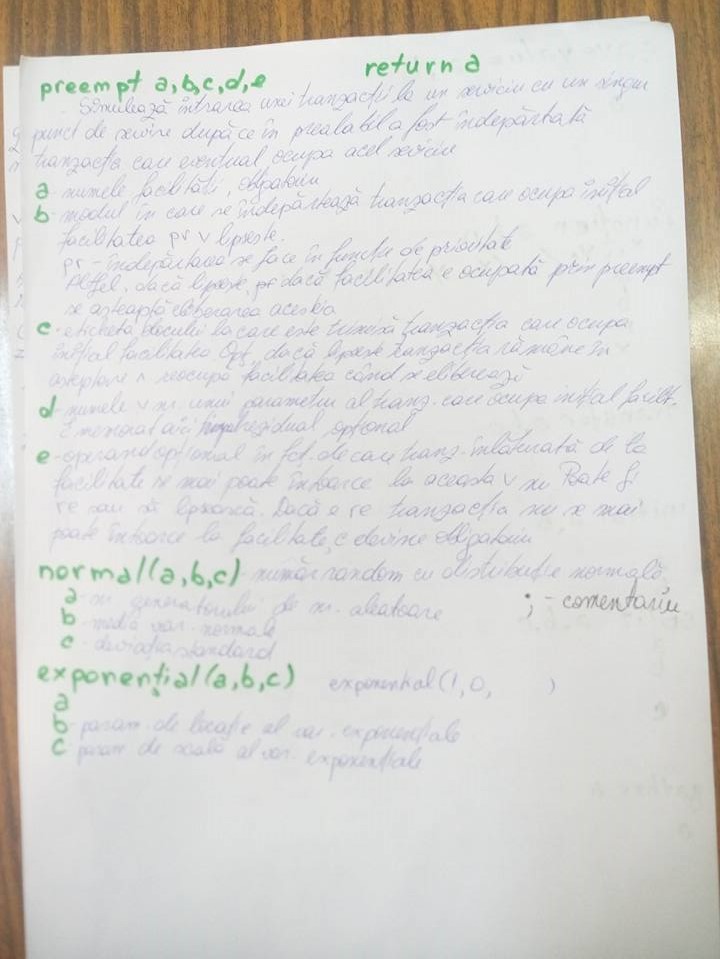 preempt a,b,c,d,e return a
- Simulează intrarea unei tranzacții la un serviciu cu un singur
punct de servire după ce în prealabil a fost îndepărtată
tranzacția care eventual ocupa acel serviciu
a - numele facilității, obligatoriu
b - modul în care se îndepărtează tranzacția care ocupa inițial
facilitatea pr v lipsește.
pr - îndepărtarea se face în funcție de prioritate
Altfel, dacă lipsește pr dacă facilitatea e ocupată prin preempt
se așteaptă eliberarea acesteia
c - eticheta blocului la care este trimisă tranzacția care ocupa
inițial facilitatea Opț, dacă lipsește tranzacția rămâne în
așteptare ^ reocupă facilitatea când se eliberează
d - numele v nr. unui parametru al tranz. care ocupa inițial facilit.
E memorat aici timpul rezidual opțional
e - operand opțional în fcț. de care tranz. înlăturată de la
facilitate se mai poate întoarce la aceasta v nu Poate fi
re sau să lipsească. Dacă e re tranzacția nu se mai
poate întoarce la facilitate, c devine obligatoriu
normal(a,b,c) - număr random cu distribuție normală
a - nr generatorului de nr. aleatoare
; - comentariu
b - media var. normale
c - deviația standard
exponențial(a,b,c) exponential(1,0, )
a
b - param. de locație al var. exponențiale
c - param de scală al var. exponențiale